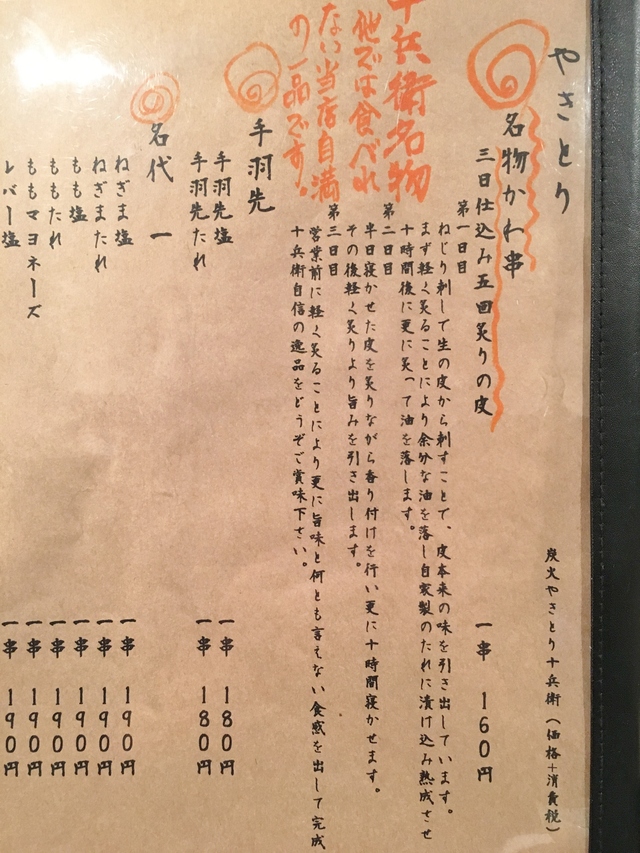 やきとり
炭火やきとり十兵衛(価格+消費税)
名物かわ串
三日仕込み五回炙りの皮
一串 160円
第一日目
ねじり刺しで生の皮から刺すことで、皮本来の味を引き出しています。
まず軽く炙ることにより余分な油を落し自家製のたれに漬け込み熟成させ
十時間後に更に炙って油を落します。
第二日目
半日寝かせた皮を炙りながら香り付けを行い更に十時間寝かせます。
その後軽く炙りより旨みを引き出します。
第三日目
営業前に軽く炙ることにより更に旨味と何とも言えない食感を出して完成
十兵衛自信の逸品をどうぞご賞味下さい。
十兵衛名物
他では食べれ
ない当店自満
の一品です。
手羽先
手羽先塩 一串 180円
手羽先たれ 一串 180円
名代 一
ねぎま塩 一串 190円
ねぎまたれ 一串 190円
もも塩 一串 190円
ももたれ 一串 190円
ももマヨネーズ 一串 190円
レバー塩 一串 190円